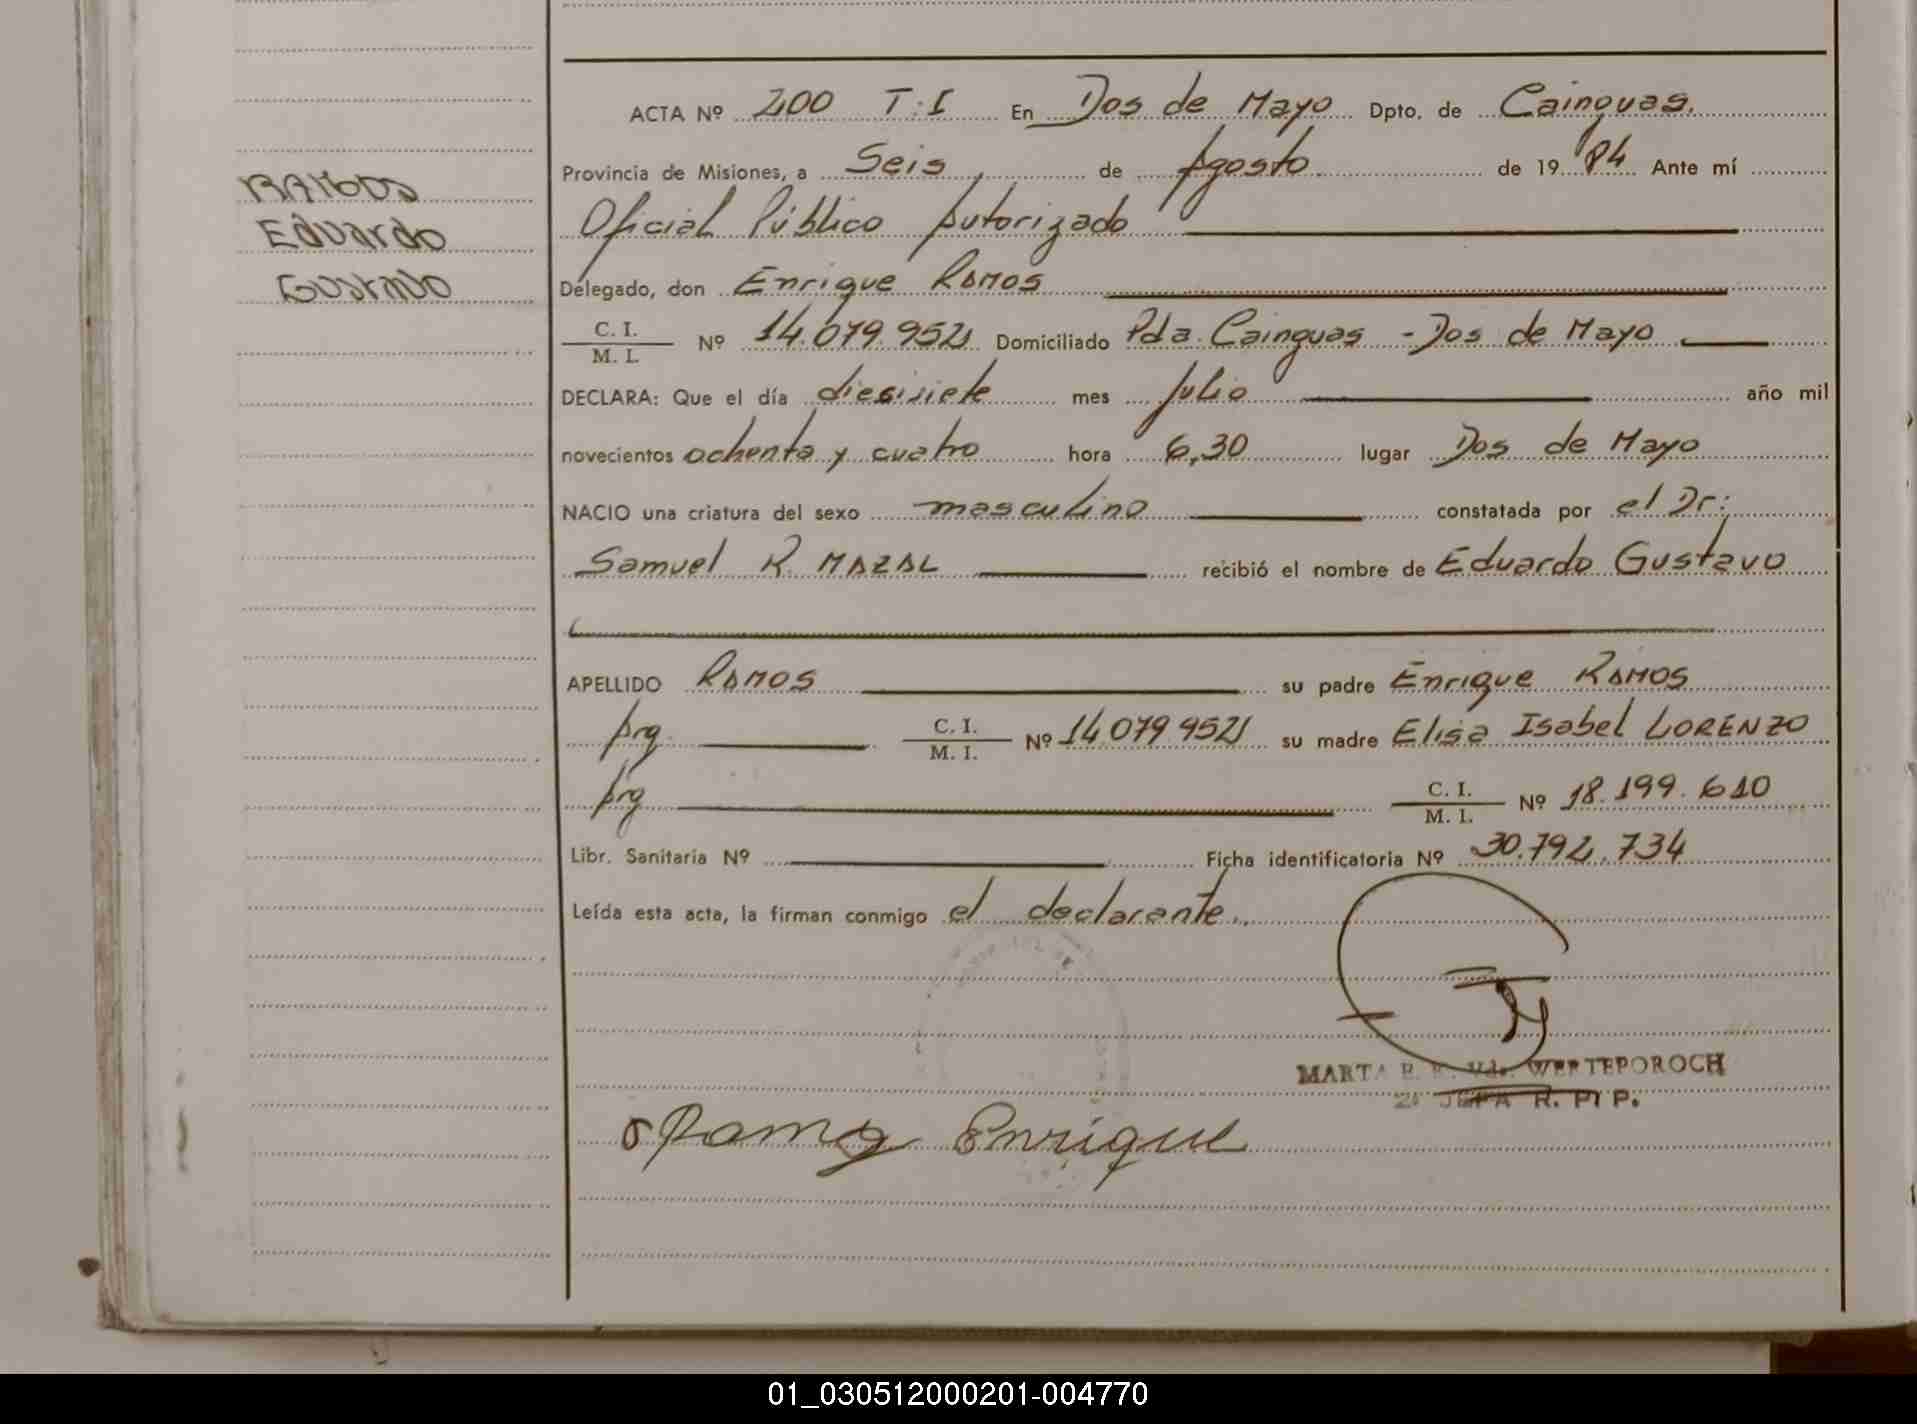 RAMOS
Eduardo
Gustavo
ACTA Nº 200 T:I En Dos de Mayo Dpto. de Cainguas.
Provincia de Misiones, a Seis de Agosto de 1984 Ante mí
Oficial Público Autorizado
Delegado, don Enrique RAMOS
C. I.
M. I. Nº 14.079.952 Domiciliado Pda. Cainguas - Dos de Mayo
DECLARA: Que el día diesisiete mes Julio año mil
novecientos ochenta y cuatro hora 6,30 lugar Dos de Mayo
NACIO una criatura del sexo masculino constatada por el Dr:
Samuel R. MAZAL recibió el nombre de Eduardo Gustavo
APELLIDO RAMOS su padre Enrique RAMOS
Arg. C. I.
M. I. Nº 14.079.952 su madre Elisa Isabel LORENZO
Arg C. I.
M. I. Nº 18.199.610
Libr. Sanitaria Nº Ficha identificatoria Nº 30.792.734
Leída esta acta, la firman conmigo el declarante.
MARTA Vda. WERTEPOROCH
JEFA R. P. P.
Ramos Enrique
01_030512000201-004770